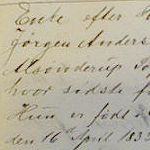 Enke efter H
Jørgen Anders
Alsønderup So
hvor sidste f
Hun er født d
den 16 April 183